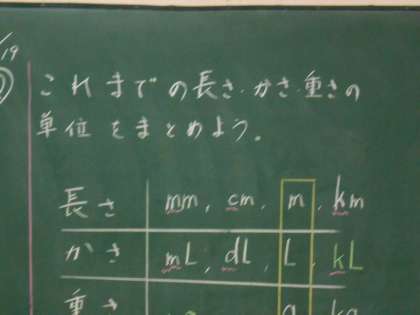 /19
これまでの長さ・かさ・重さの
単位をまとめよう。
長さ mm, cm, m, km
かさ mL, dL, L, kL
重さ g kg